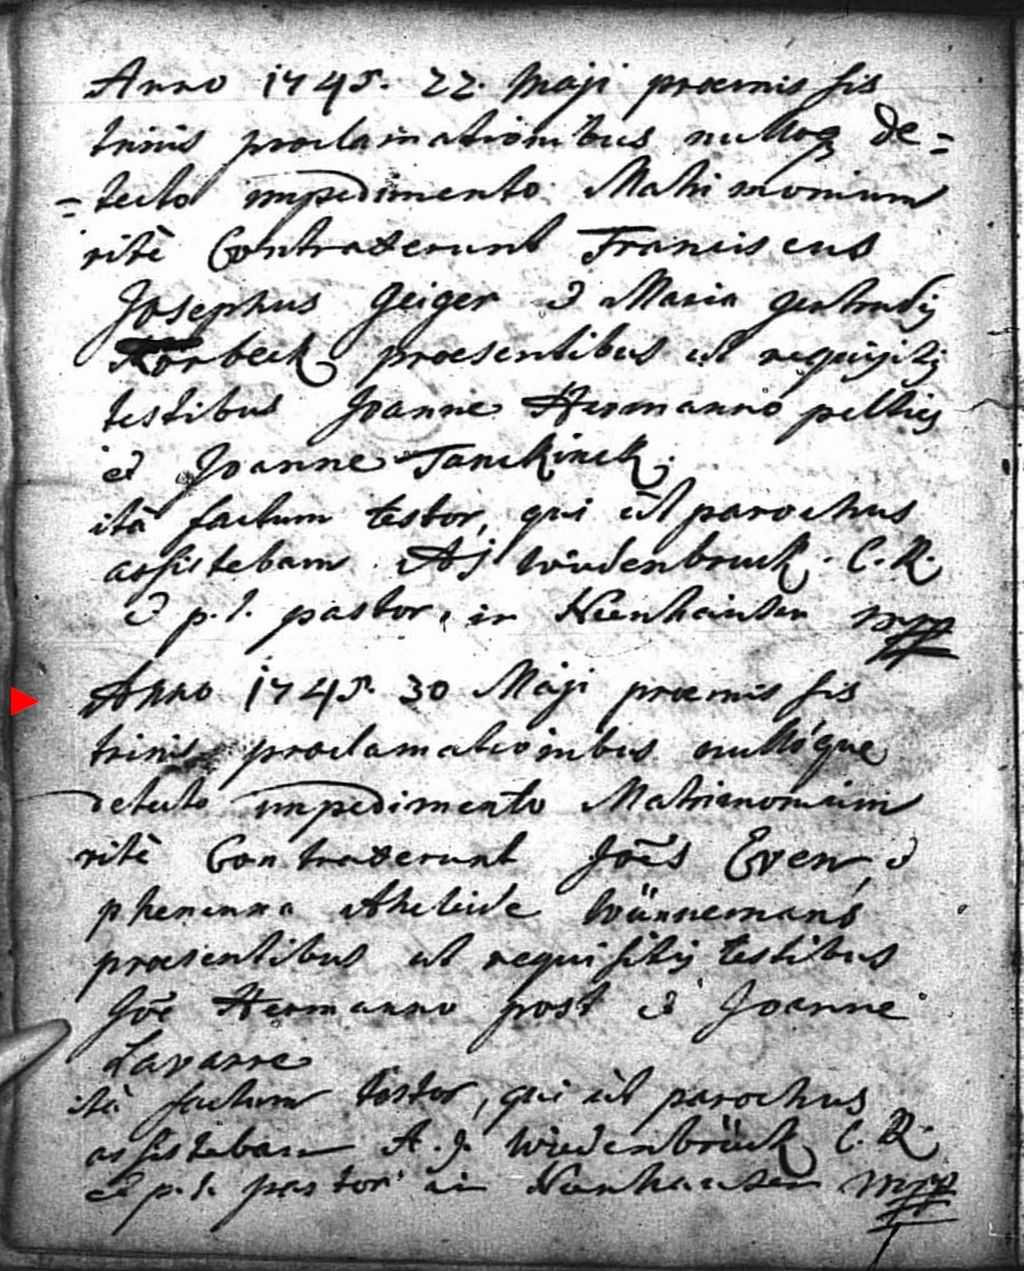 Anno 1745. 22. Maji praemissis
trinis proclamationibus nulloq de=
=tecto impedimento Matrimonium
ritè Contraxerunt Franciscus
Josephus Geiger & Maria
Korbeck praesentibus ut requisitis
testibus Joanne Hermanno
et Joanne Tanckinck.
ità factum testor, qui ùt parochus
assistebam AJ Wiedenbruck. C. R.
& p. t. pastor, in Neenhausen mpp
Anno 1745. 30 Maji praemissis
trinis proclamationibus nullóque
detecto impedimento Matrimonium
ritè Contraxerunt Joēs Even, &
phenenna Aheleide Wünnemans
praesentibus ut requisitis testibus
Joē Hermanno post et Joanne
Lavarre
ità factum testor, qui ùt parochus
assistebam A. J. Wiedenbrück C. R.
et p. t. pastor in Nienhausen mpp